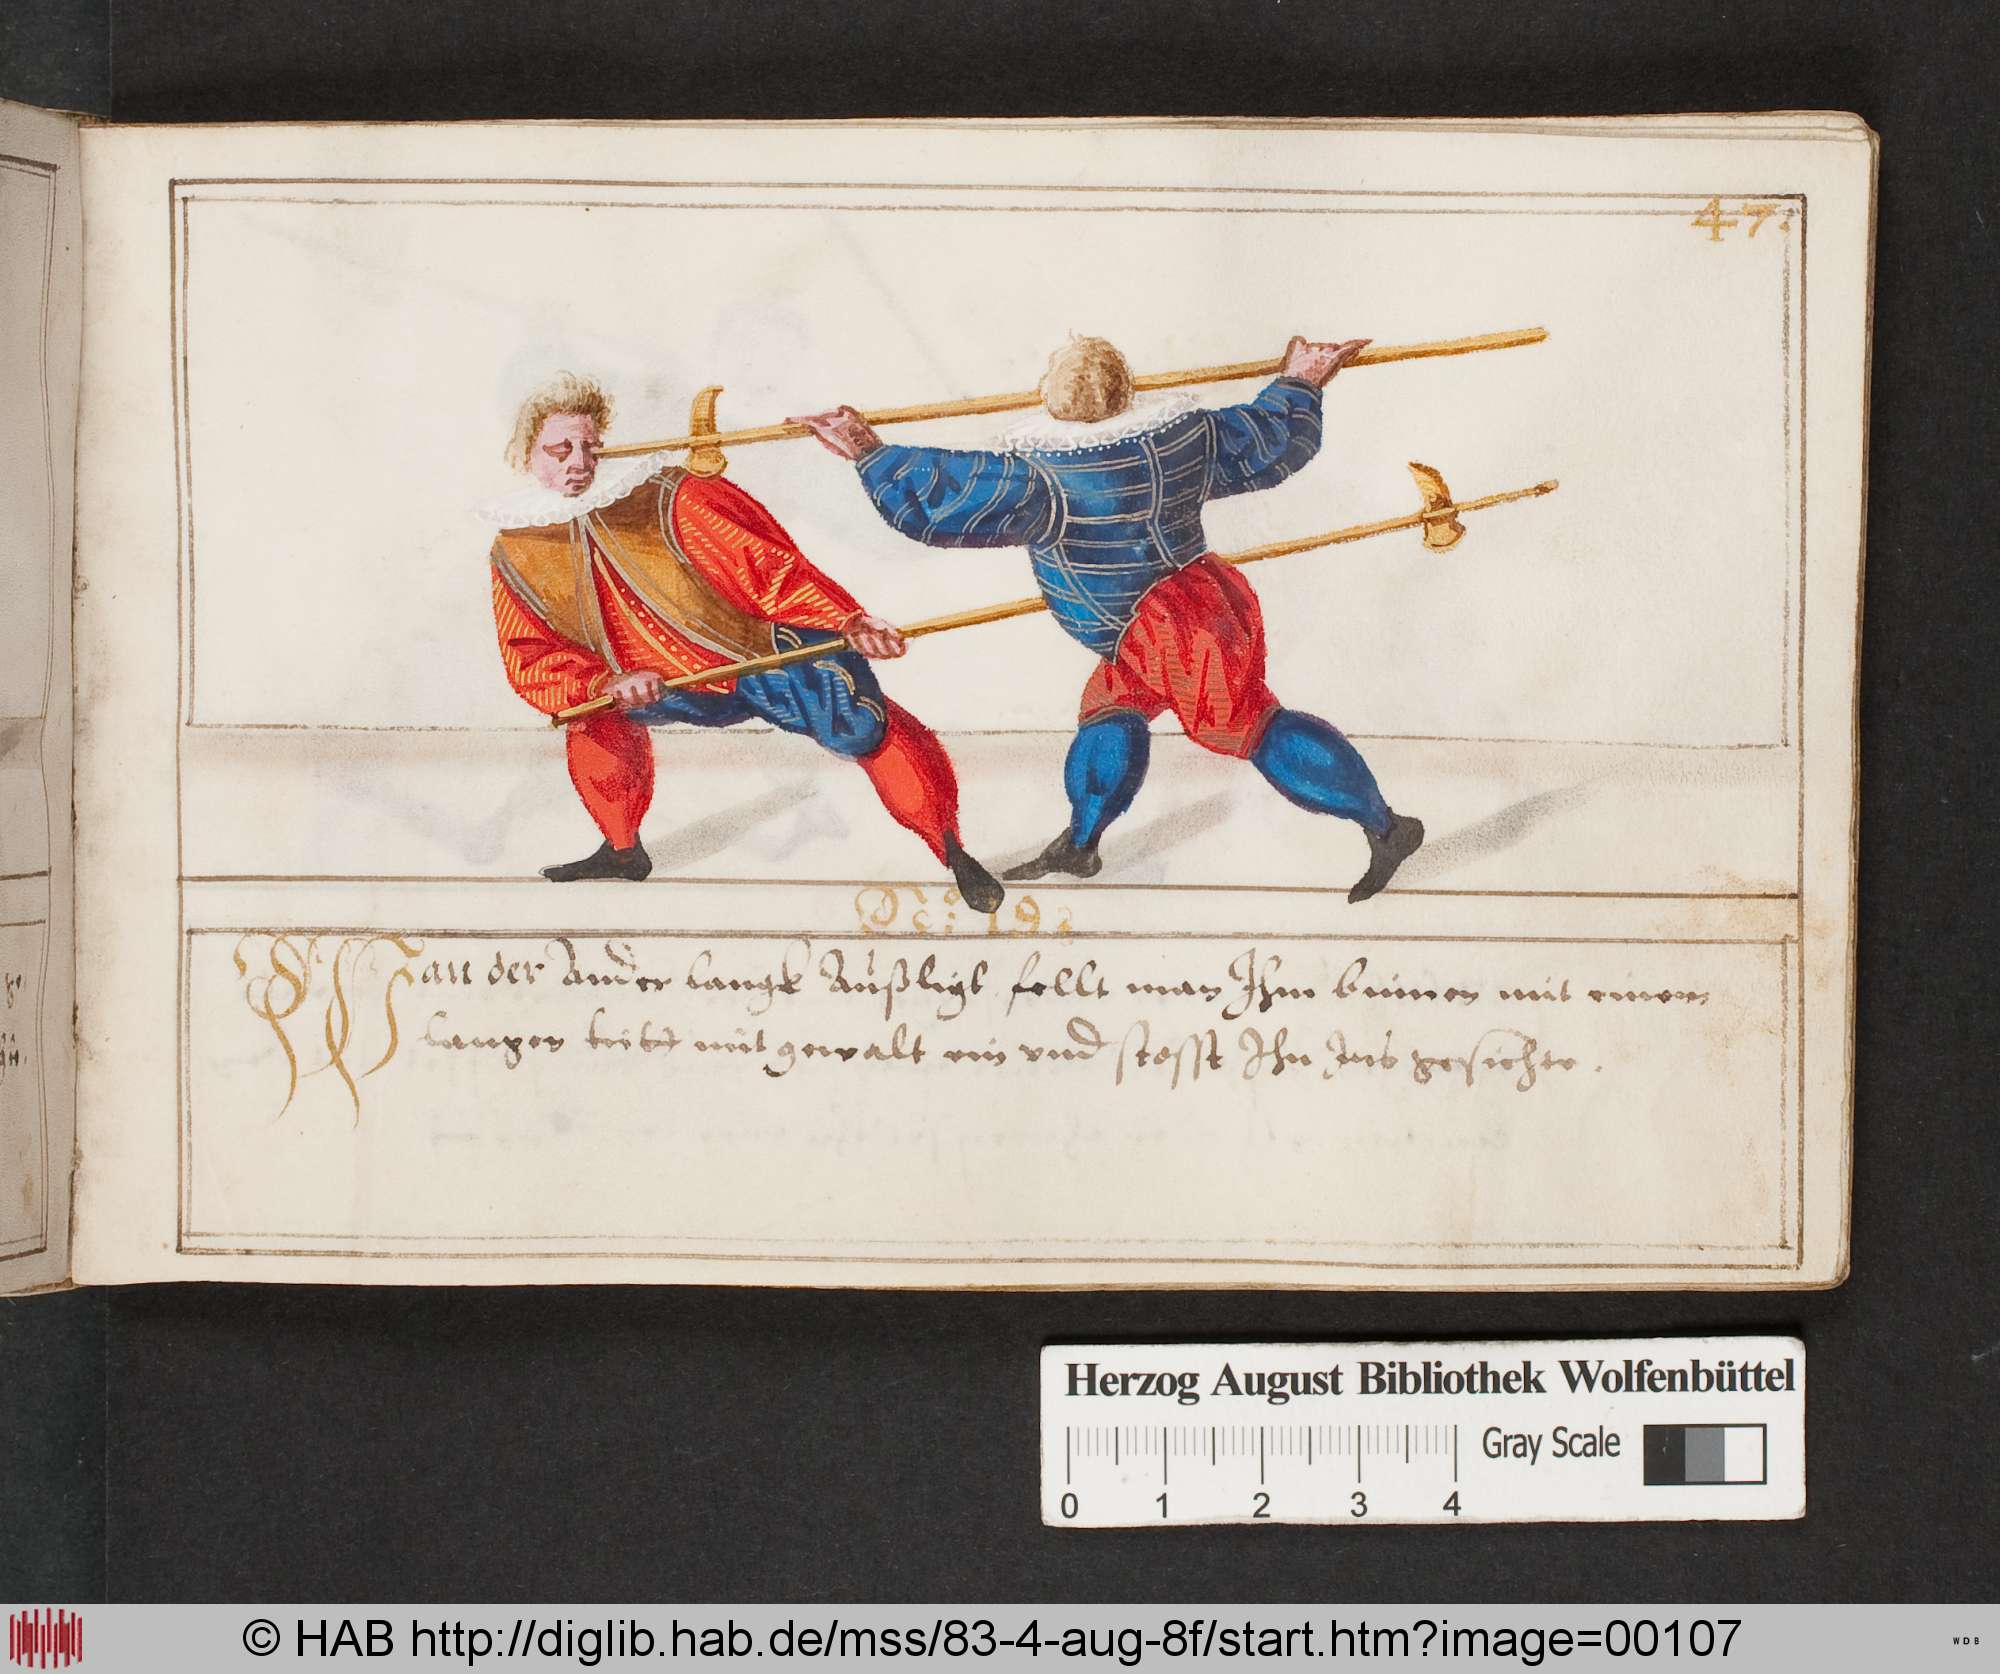 47.
No: 19:
Wan der Ander langk Außligt fellt man Ihm binnen mit einem
langen tritt mit gewalt ein und stosst Ihn Ins gesichte.
Herzog August Bibliothek Wolfenbüttel
Gray Scale
0 1 2 3 4
© HAB http://diglib.hab.de/mss/83-4-aug-8f/start.htm?image=00107
WDB